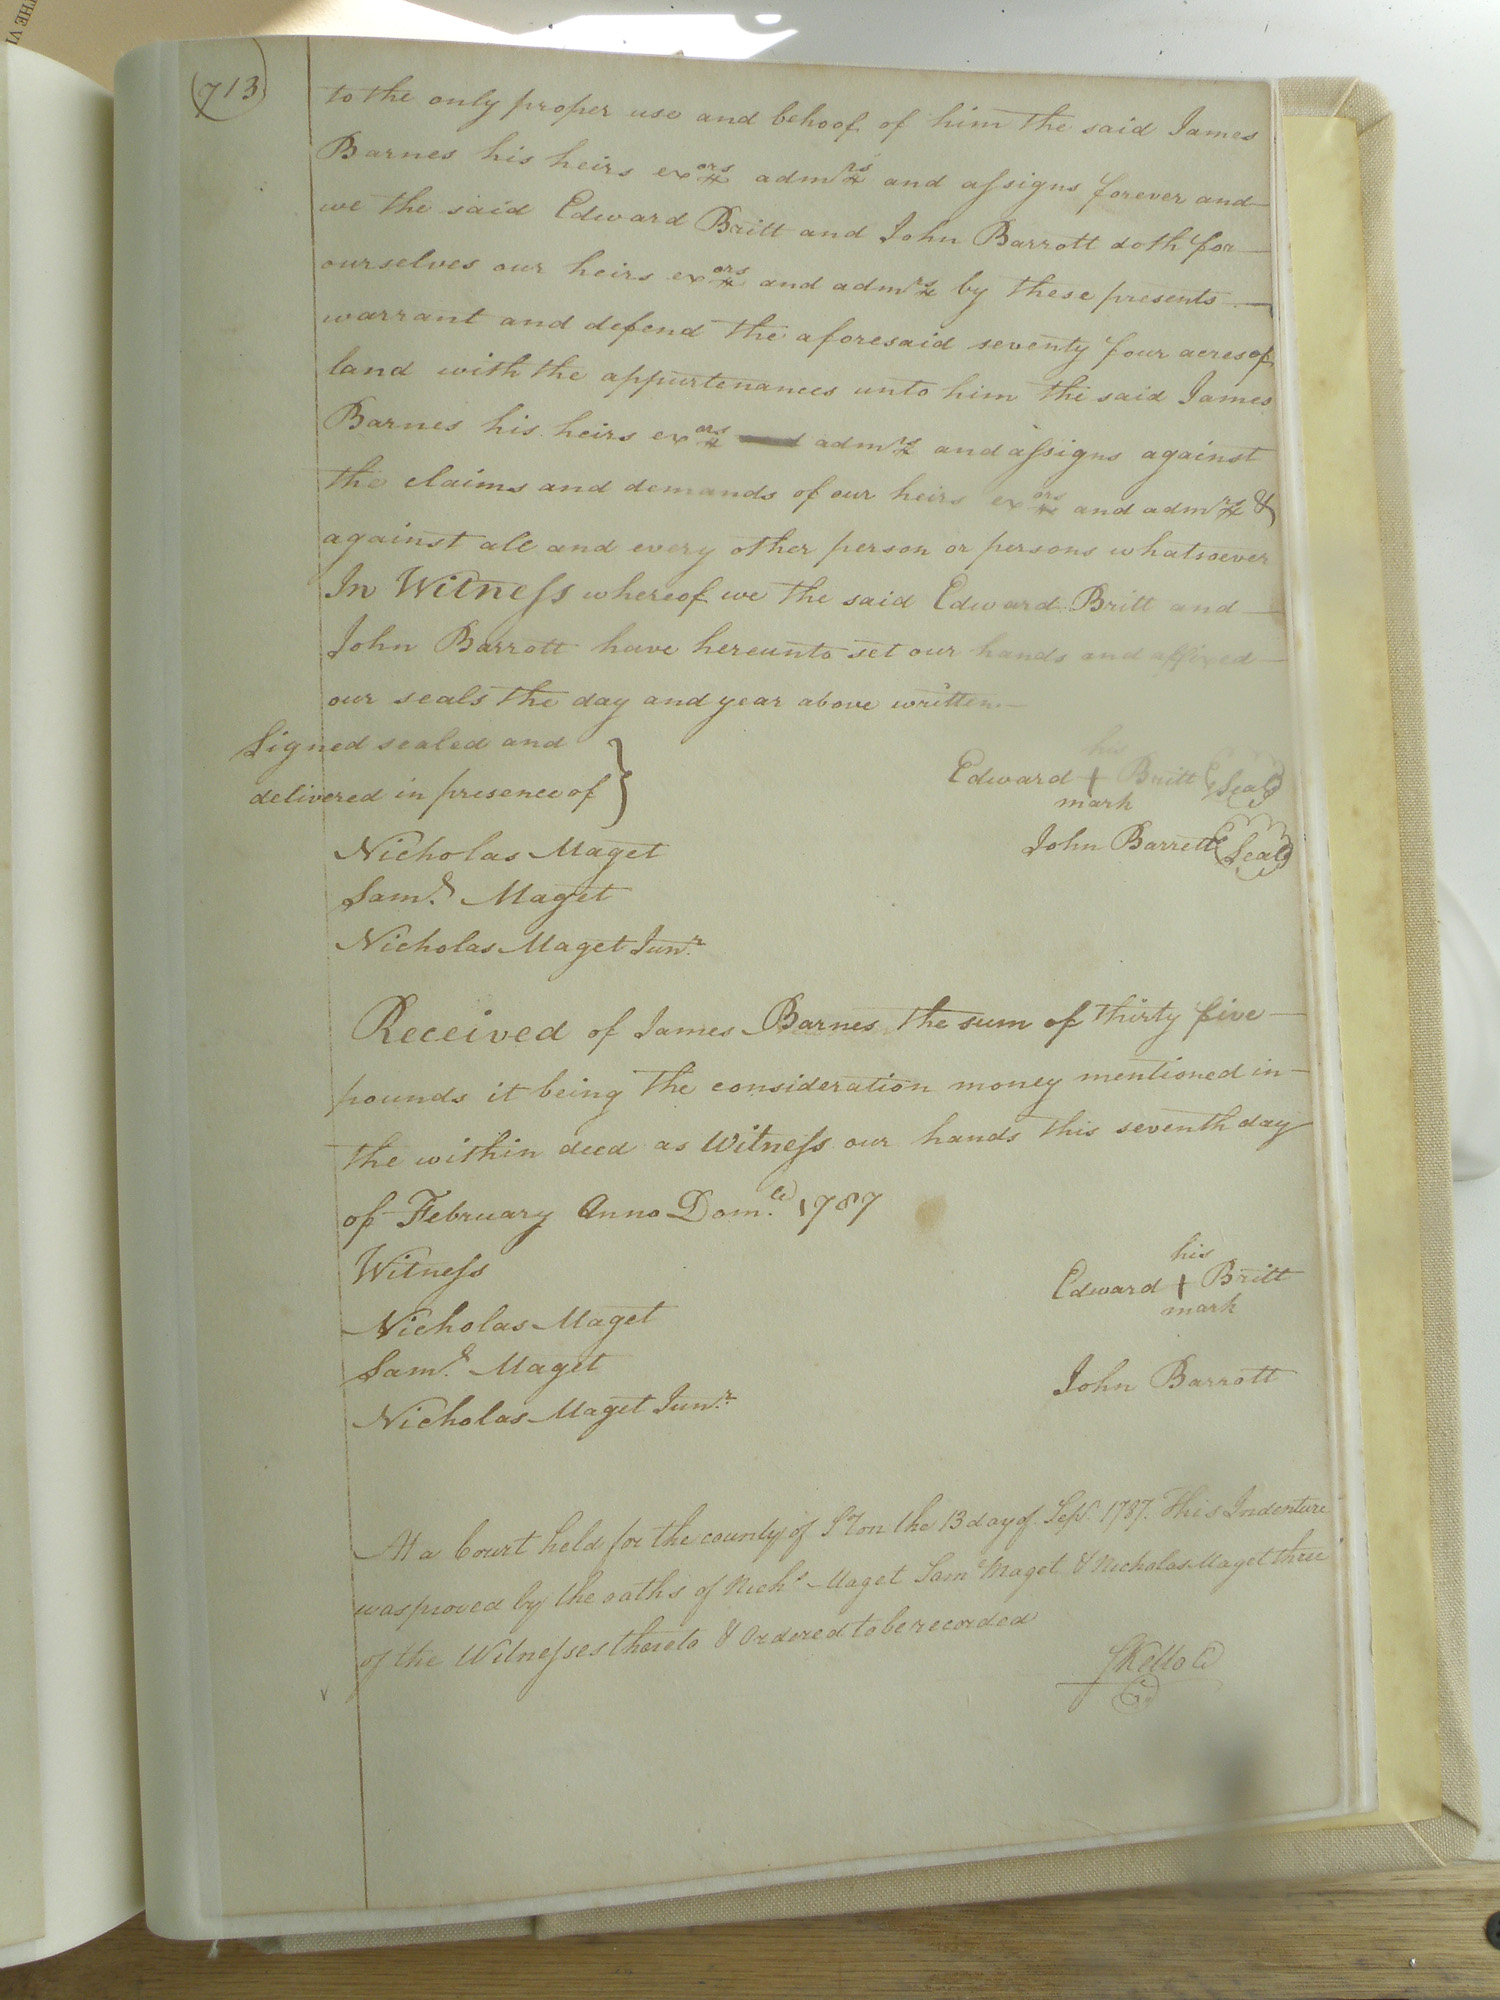 THE VI
(713)
to the only proper use and behoof of him the said James
Barnes his heirs exors admrs and assigns forever and
we the said Edward Britt and John Barrott doth for
ourselves our heirs exors and admrs by these presents
warrant and defend the aforesaid seventy four acres of
land with the appurtenances unto him the said James
Barnes his heirs exors admrs and assigns against
the claims and demands of our heirs exors and admrs &
against all and every other person or persons whatsoever
In Witness whereof we the said Edward Britt and
John Barrott have hereunto set our hands and affixed
our seals the day and year above written
Signed sealed and
delivered in presence of }
his
Edward + Britt (Seal)
mark
John Barrett (Seal)
Nicholas Maget
Saml. Maget
Nicholas Maget Junr.
Received of James Barnes the sum of thirty five
pounds it being the consideration money mentioned in
the within deed as Witness our hands this seventh day
of February Anno Dom. 1787
Witness
his
Edward + Britt
mark
Nicholas Maget
Saml. Maget
John Barrott
Nicholas Maget Junr.
At a Court held for the county of Soton the 13 day of Sept. 1787. This Indenture
was proved by the oaths of Nichs. Maget Saml Maget & Nicholas Maget three
of the Witnesses thereto & Ordered to be recorded
SKello